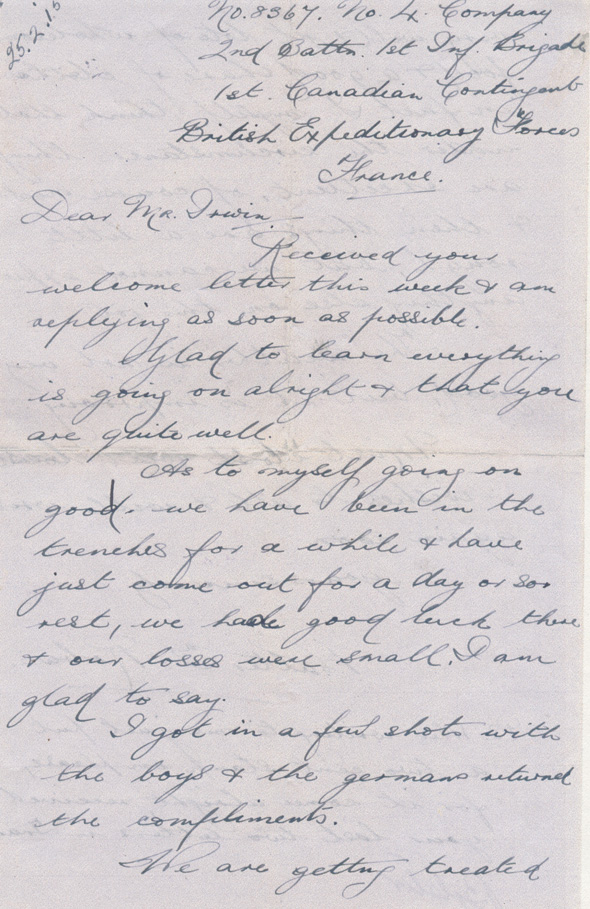 25.2.15
No. 8367. No. 4. Company
2nd Battn. 1st Inf. Brigade
1st. Canadian Contingent
British Expeditionary Forces
France.
Dear Mr. Irwin
Received your
welcome letter this week & am
replying as soon as possible.
Glad to learn everything
is going on alright & that you
are quite well.
As to myself going on
good. we have been in the
trenches for a while & have
just come out for a day or so
rest, we had good luck there
& our losses were small. I am
glad to say.
I got in a few shots with
the boys & the germans returned
the compliments.
We are getting treated